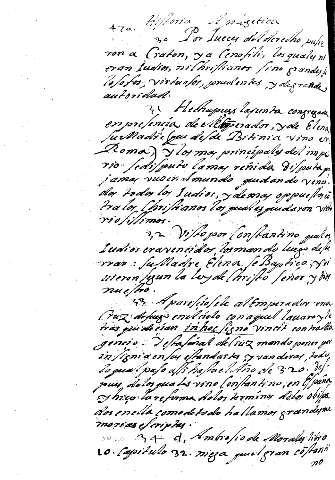 420. Historia
30 Por Jueces del derecho, pusie
ron a Craton, y a Cenofili, los quales ni
eran Iudios, ni Christianos sino grandes fi
losofos, virtuosos, prudentes, y de grande
autoridad.
31 Hecha pues la junta congregada
en presencia de el Emperador, y de Elena
su Madre (que desde Bitinia vino a
Roma) y los mas principales del impe
rio se disputo la mas reñida disputa q
jamas vuo en el mundo quedando venci
dos todos los Iudios, y demas oppuestos
tra los Christianos los quales quedaron vito
riosissimos.
32 Visto por Constantino que los
Iudios eran vencidos los mando luego de
rrar: su Madre Elena se Baptiço, y vi
uieron segun la ley de Christo señor
nuestro.
33 Apareciosele al Emperador vna
Cruz de fuego en el cielo con aquel
tras que decian in hoc signo vincit contra
gencio: Y esta señal de cruz mando poner por
insignia en sus estandartes y vanderas, todo
lo qual paso asi hasta el año de 320. des
pues, de los quales vino Constantino, en España
y hizo la reforma de los terminos de los obispa
dos en ella como de todo hallamos grandes me
morias escriptas.
34 Ambrosio de Morales libro
10. Capitulo 32. niega que el gran Constanti
no